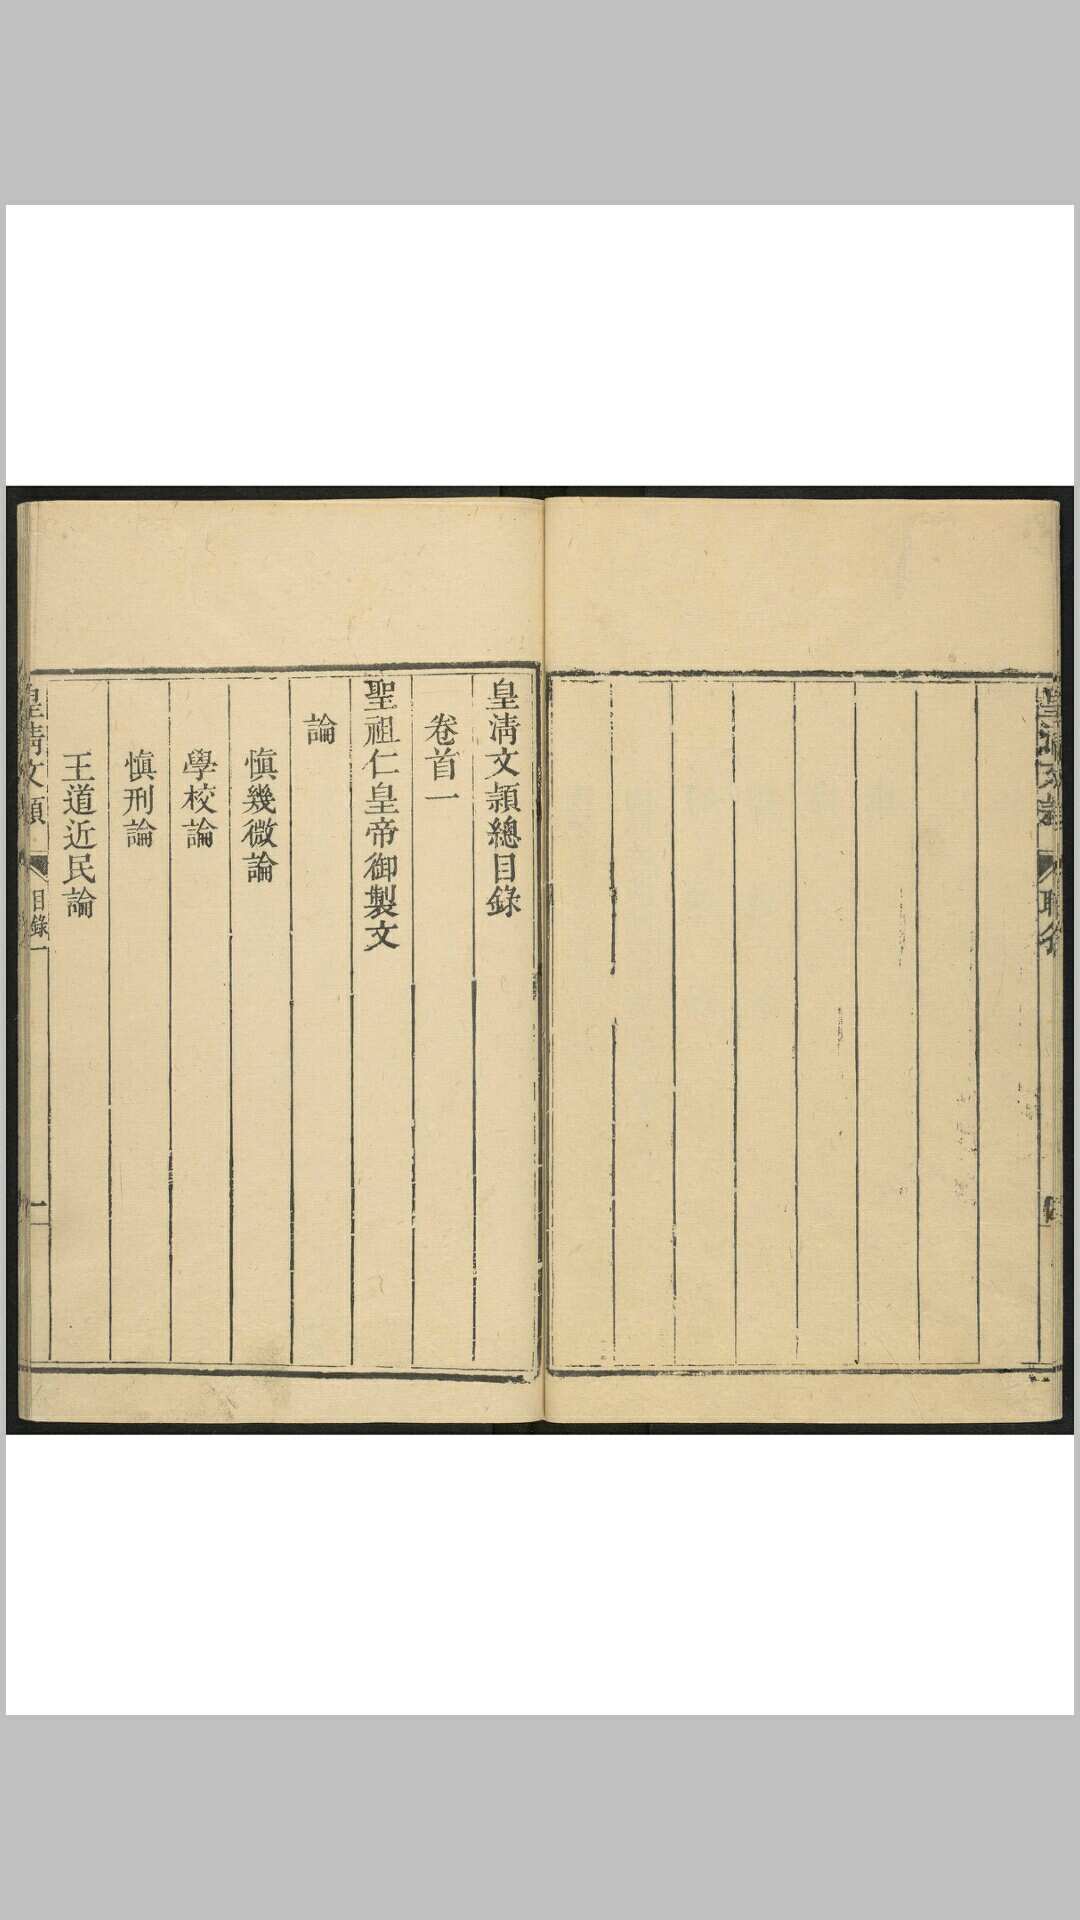 皇淸文穎總目錄
卷首一
聖祖仁皇帝御製文
論
愼幾微論
學校論
愼刑論
王道近民論
皇淸文穎
目錄一
一